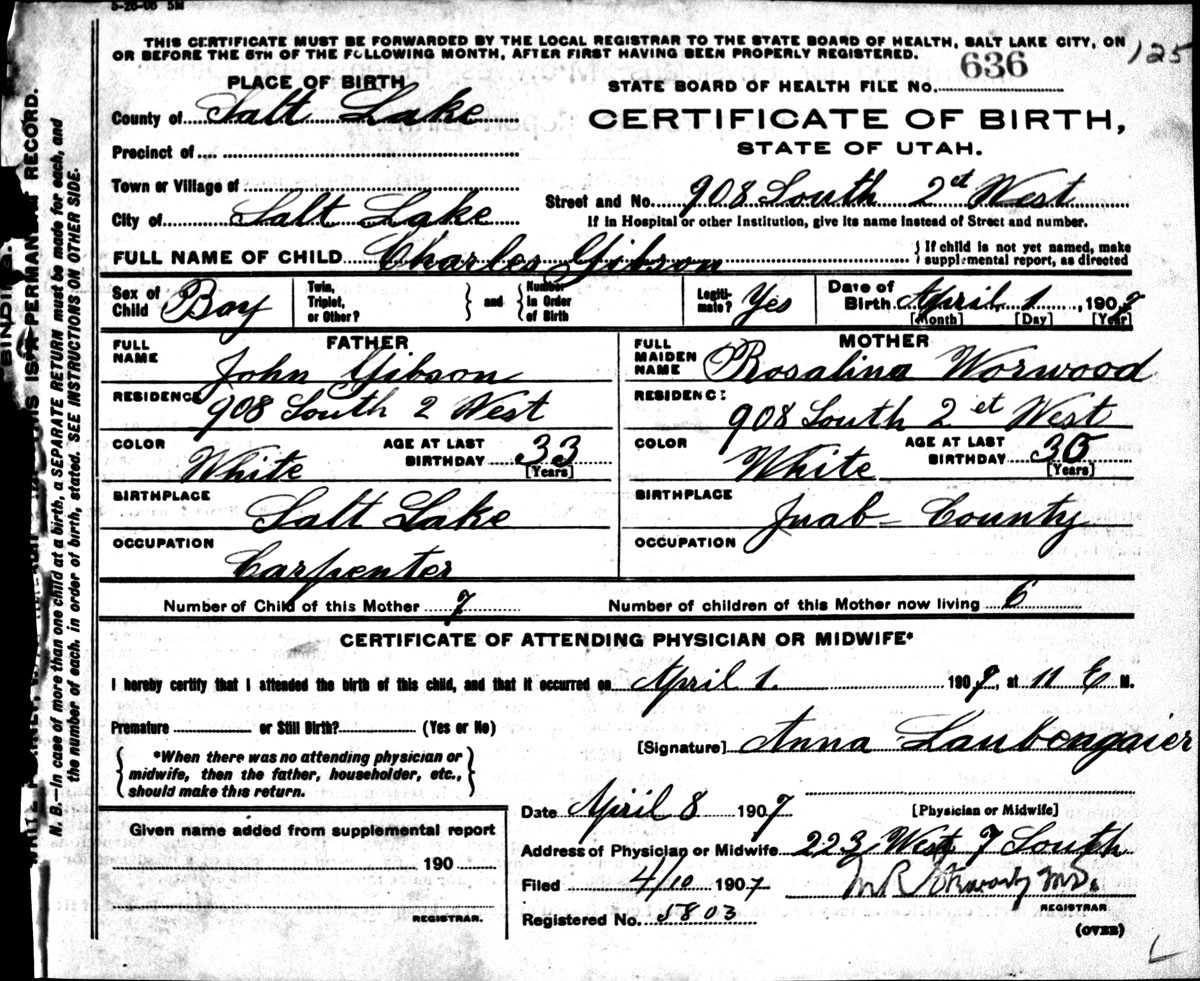 5-26-06 5M
THIS CERTIFICATE MUST BE FORWARDED BY THE LOCAL REGISTRAR TO THE STATE BOARD OF HEALTH, SALT LAKE CITY, ON
OR BEFORE THE 5TH OF THE FOLLOWING MONTH, AFTER FIRST HAVING BEEN PROPERLY REGISTERED.
125
PLACE OF BIRTH
STATE BOARD OF HEALTH FILE No. 636
County of Salt Lake
CERTIFICATE OF BIRTH,
STATE OF UTAH.
Precinct of
Town or Village of
Street and No. 908 South 2et West
City of Salt Lake
If in Hospital or other Institution, give its name instead of Street and number.
FULL NAME OF CHILD Charles Gibson
{ If child is not yet named, make
supplemental report, as directed
Sex of Child Boy
Twin, Triplet, or Other? } and { Number in Order of Birth
Legitimate? Yes
Date of Birth April 1, 1907
[Month] [Day] [Year]
FATHER
FULL NAME John Gibson
RESIDENCE 908 South 2 West
COLOR White AGE AT LAST BIRTHDAY 33 [Years]
BIRTHPLACE Salt Lake
OCCUPATION Carpenter
MOTHER
FULL MAIDEN NAME Rosalina Worwood
RESIDENCE 908 South 2et West
COLOR White AGE AT LAST BIRTHDAY 30 [Years]
BIRTHPLACE Juab County
OCCUPATION
Number of Child of this Mother 7 Number of children of this Mother now living 6
CERTIFICATE OF ATTENDING PHYSICIAN OR MIDWIFE*
I hereby certify that I attended the birth of this child, and that it occurred on April 1. 1907, at 11 E M.
Premature or Still Birth? (Yes or No)
[Signature] Anna Laubengaier
{ *When there was no attending physician or
midwife, then the father, householder, etc.,
should make this return. }
[Physician or Midwife]
Date April 8 1907
Given name added from supplemental report
190
REGISTRAR.
Address of Physician or Midwife 223 West 7 South
Filed 4/10 1907 M.D.
REGISTRAR
Registered No. 5803
(OVER)
N. B.—In case of more than one child at a birth, a SEPARATE RETURN must be made for each, and
the number of each, in order of birth, stated. SEE INSTRUCTIONS ON OTHER SIDE.
IS A PERMANENT RECORD.
BINDING.